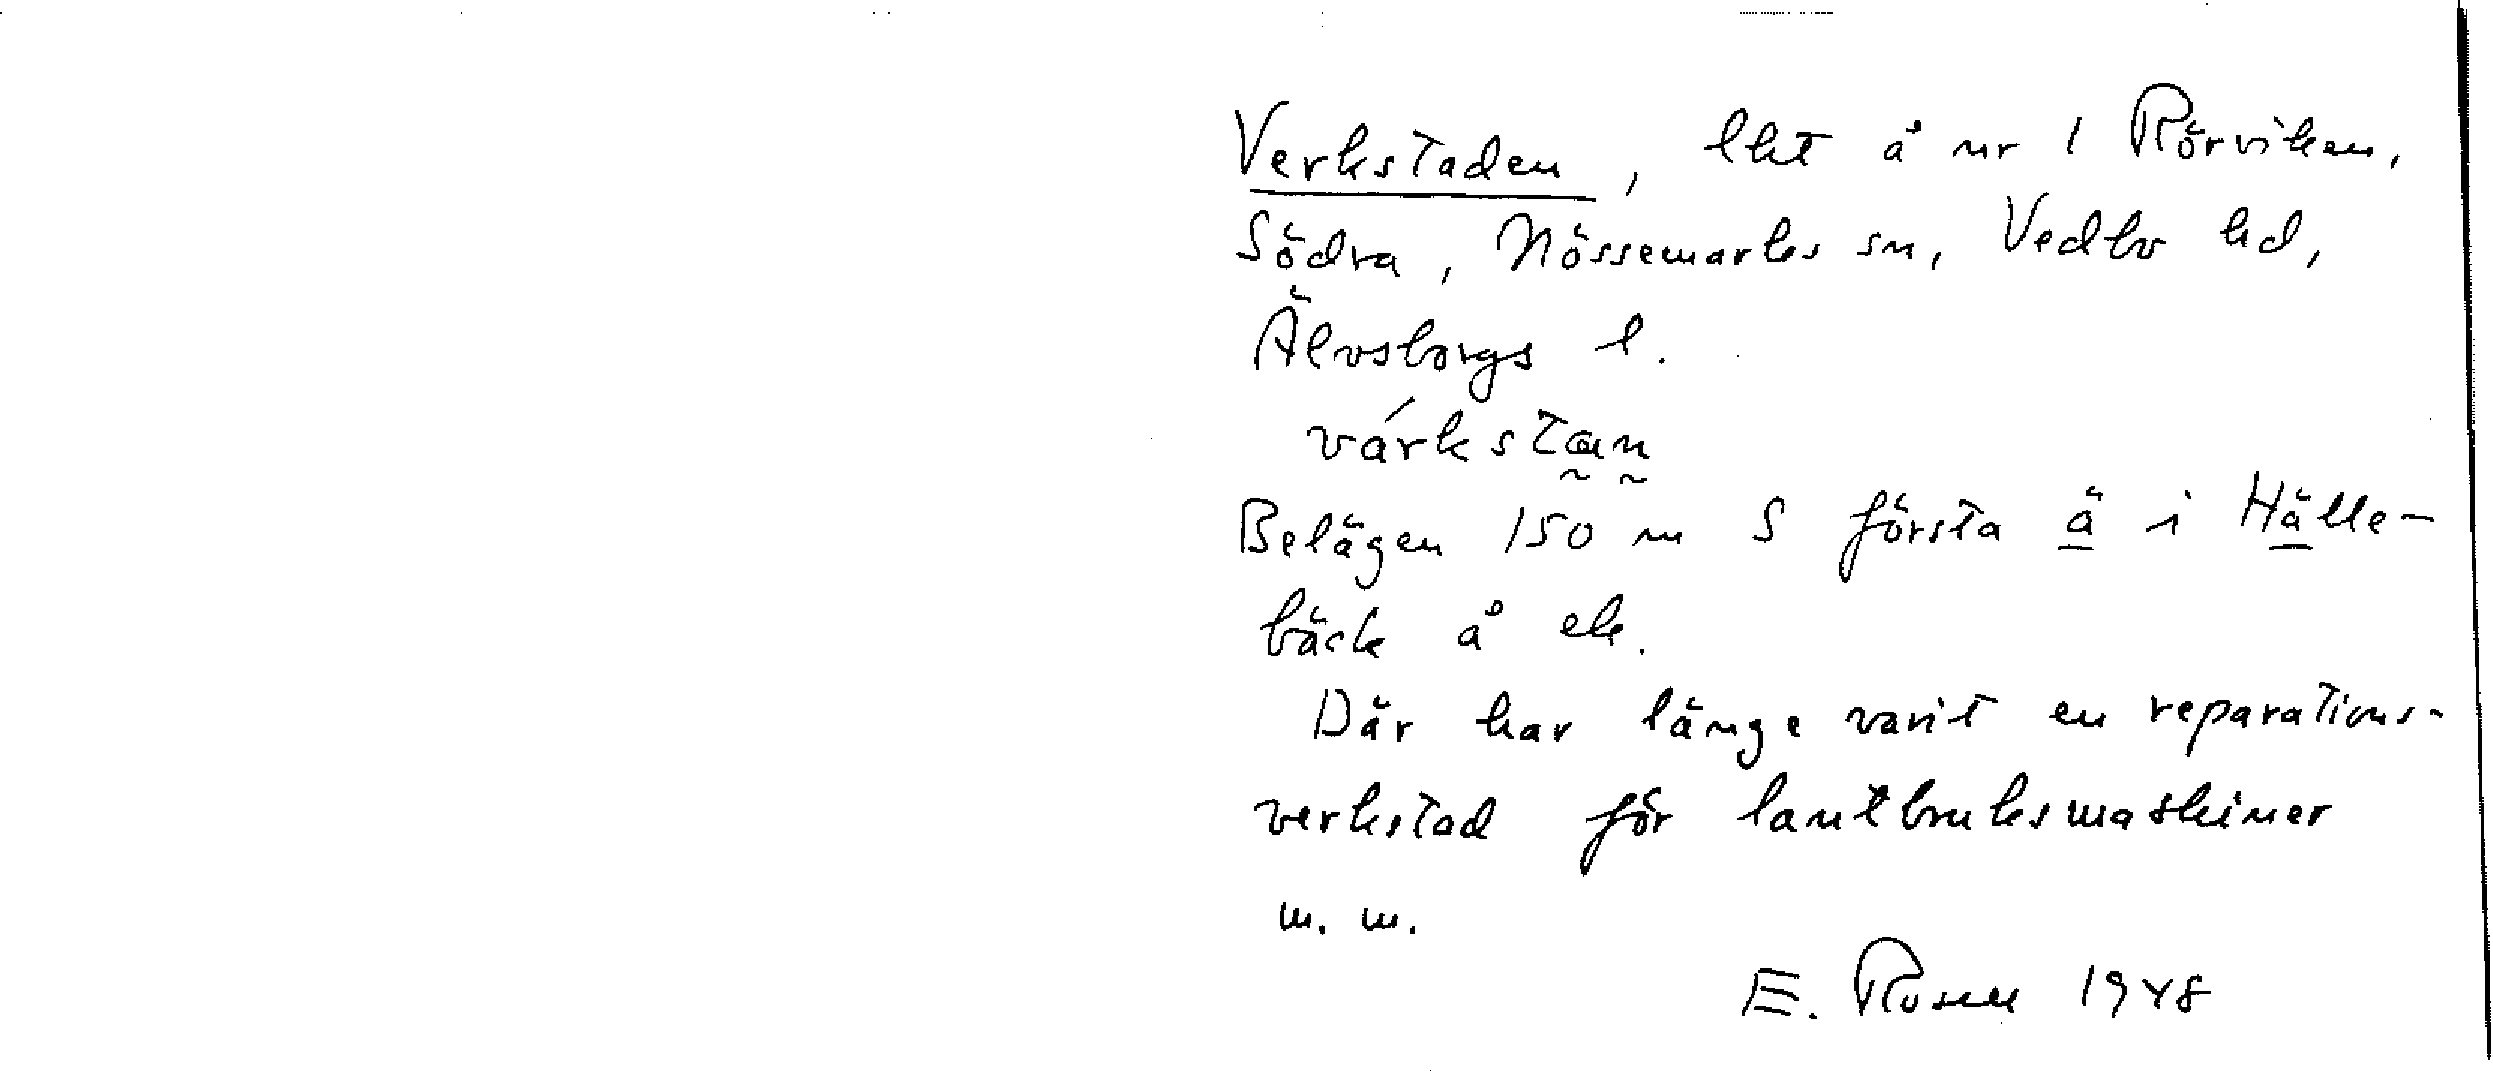 Verkstaden, lht å nr 1 Rörviken,
Södra, Nössemarks sn, Vedbo hd,
Älvsborgs l.
várkstan
Belägen 150 m S första ä i Hälle-
bäck å ek.
Där har länge varit en reparations-
verkstad för lantbruksmaskiner
m. m.
E. Rosell 1948